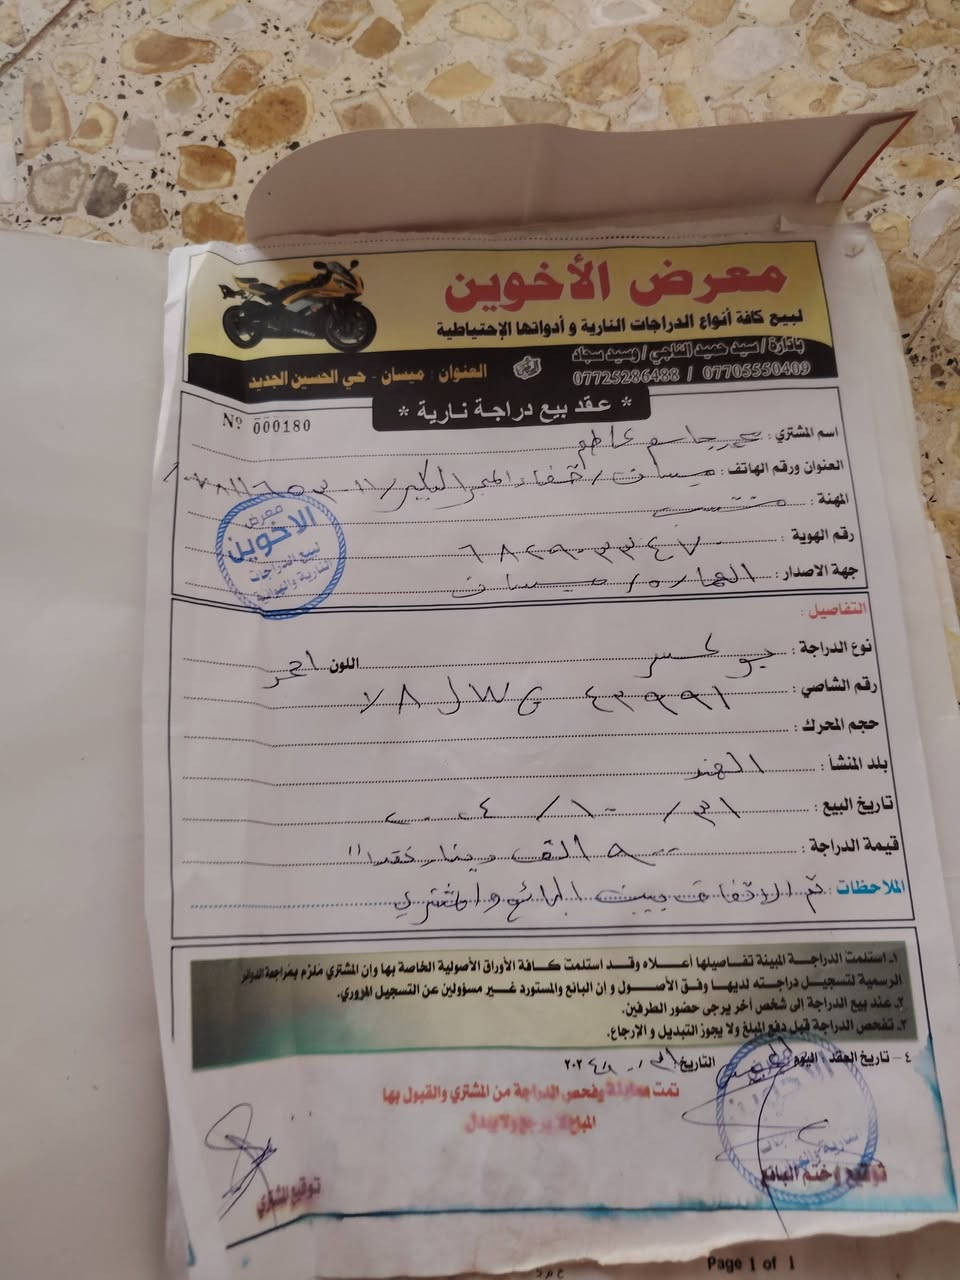 معرض الأخوين
لبيع كافة أنواع الدراجات النارية و أدواتها الإحتياطية
بادارة / سيد حميد الناجي / وسيد سجاد
07725286488 / 07705550409
العنوان : ميسان - حي الحسين الجديد
* عقد بيع دراجة نارية *
Nº 000180
اسم المشتري : جاسم كاظم
العنوان ورقم الهاتف : ميسان /
المهنة : منتسب
رقم الهوية :
جهة الاصدار : العماره / ميسان
معرض
الأخوين
لبيع الدراجات
النارية والهوائية
التفاصيل :
نوع الدراجة : بوكسر اللون احمر
رقم الشاصي : ٤٣٩٩١
حجم المحرك :
بلد المنشأ : الهند
تاريخ البيع : ٣١ / ١٠ /
قيمة الدراجة : ٩٠٠ الف دينار نقدا"
الملاحظات : تم الاتفاق بين البائع والمشتري
١ـ استلمت الدراجة المبينة تفاصيلها أعلاه وقد استلمت كافة الأوراق الأصولية الخاصة بها وان المشتري ملزم بمراجعة الدوائر
الرسمية لتسجيل دراجته لديها وفق الأصول و إن البائع والمستورد غير مسؤولين عن التسجيل المروري.
٢ـ عند بيع الدراجة إلى شخص أخر يرجى حضور الطرفين.
٣ـ تفحص الدراجة قبل دفع المبلغ ولا يجوز التبديل و الإرجاع.
٤ - تاريخ العقد : اليوم الخميس التاريخ
تمت معاينة وفحص الدراجة من المشتري والقبول بها
المباع لا يرجع ولا يبدل
توقيع وختم البائع
توقيع المشتري
Page 1 of 1